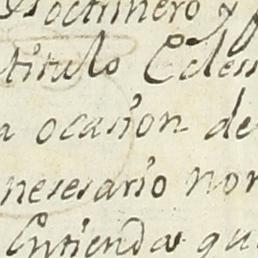 Doctrinero y
titulo Coless
a ocasion de
nesesario nom
Entienda qu